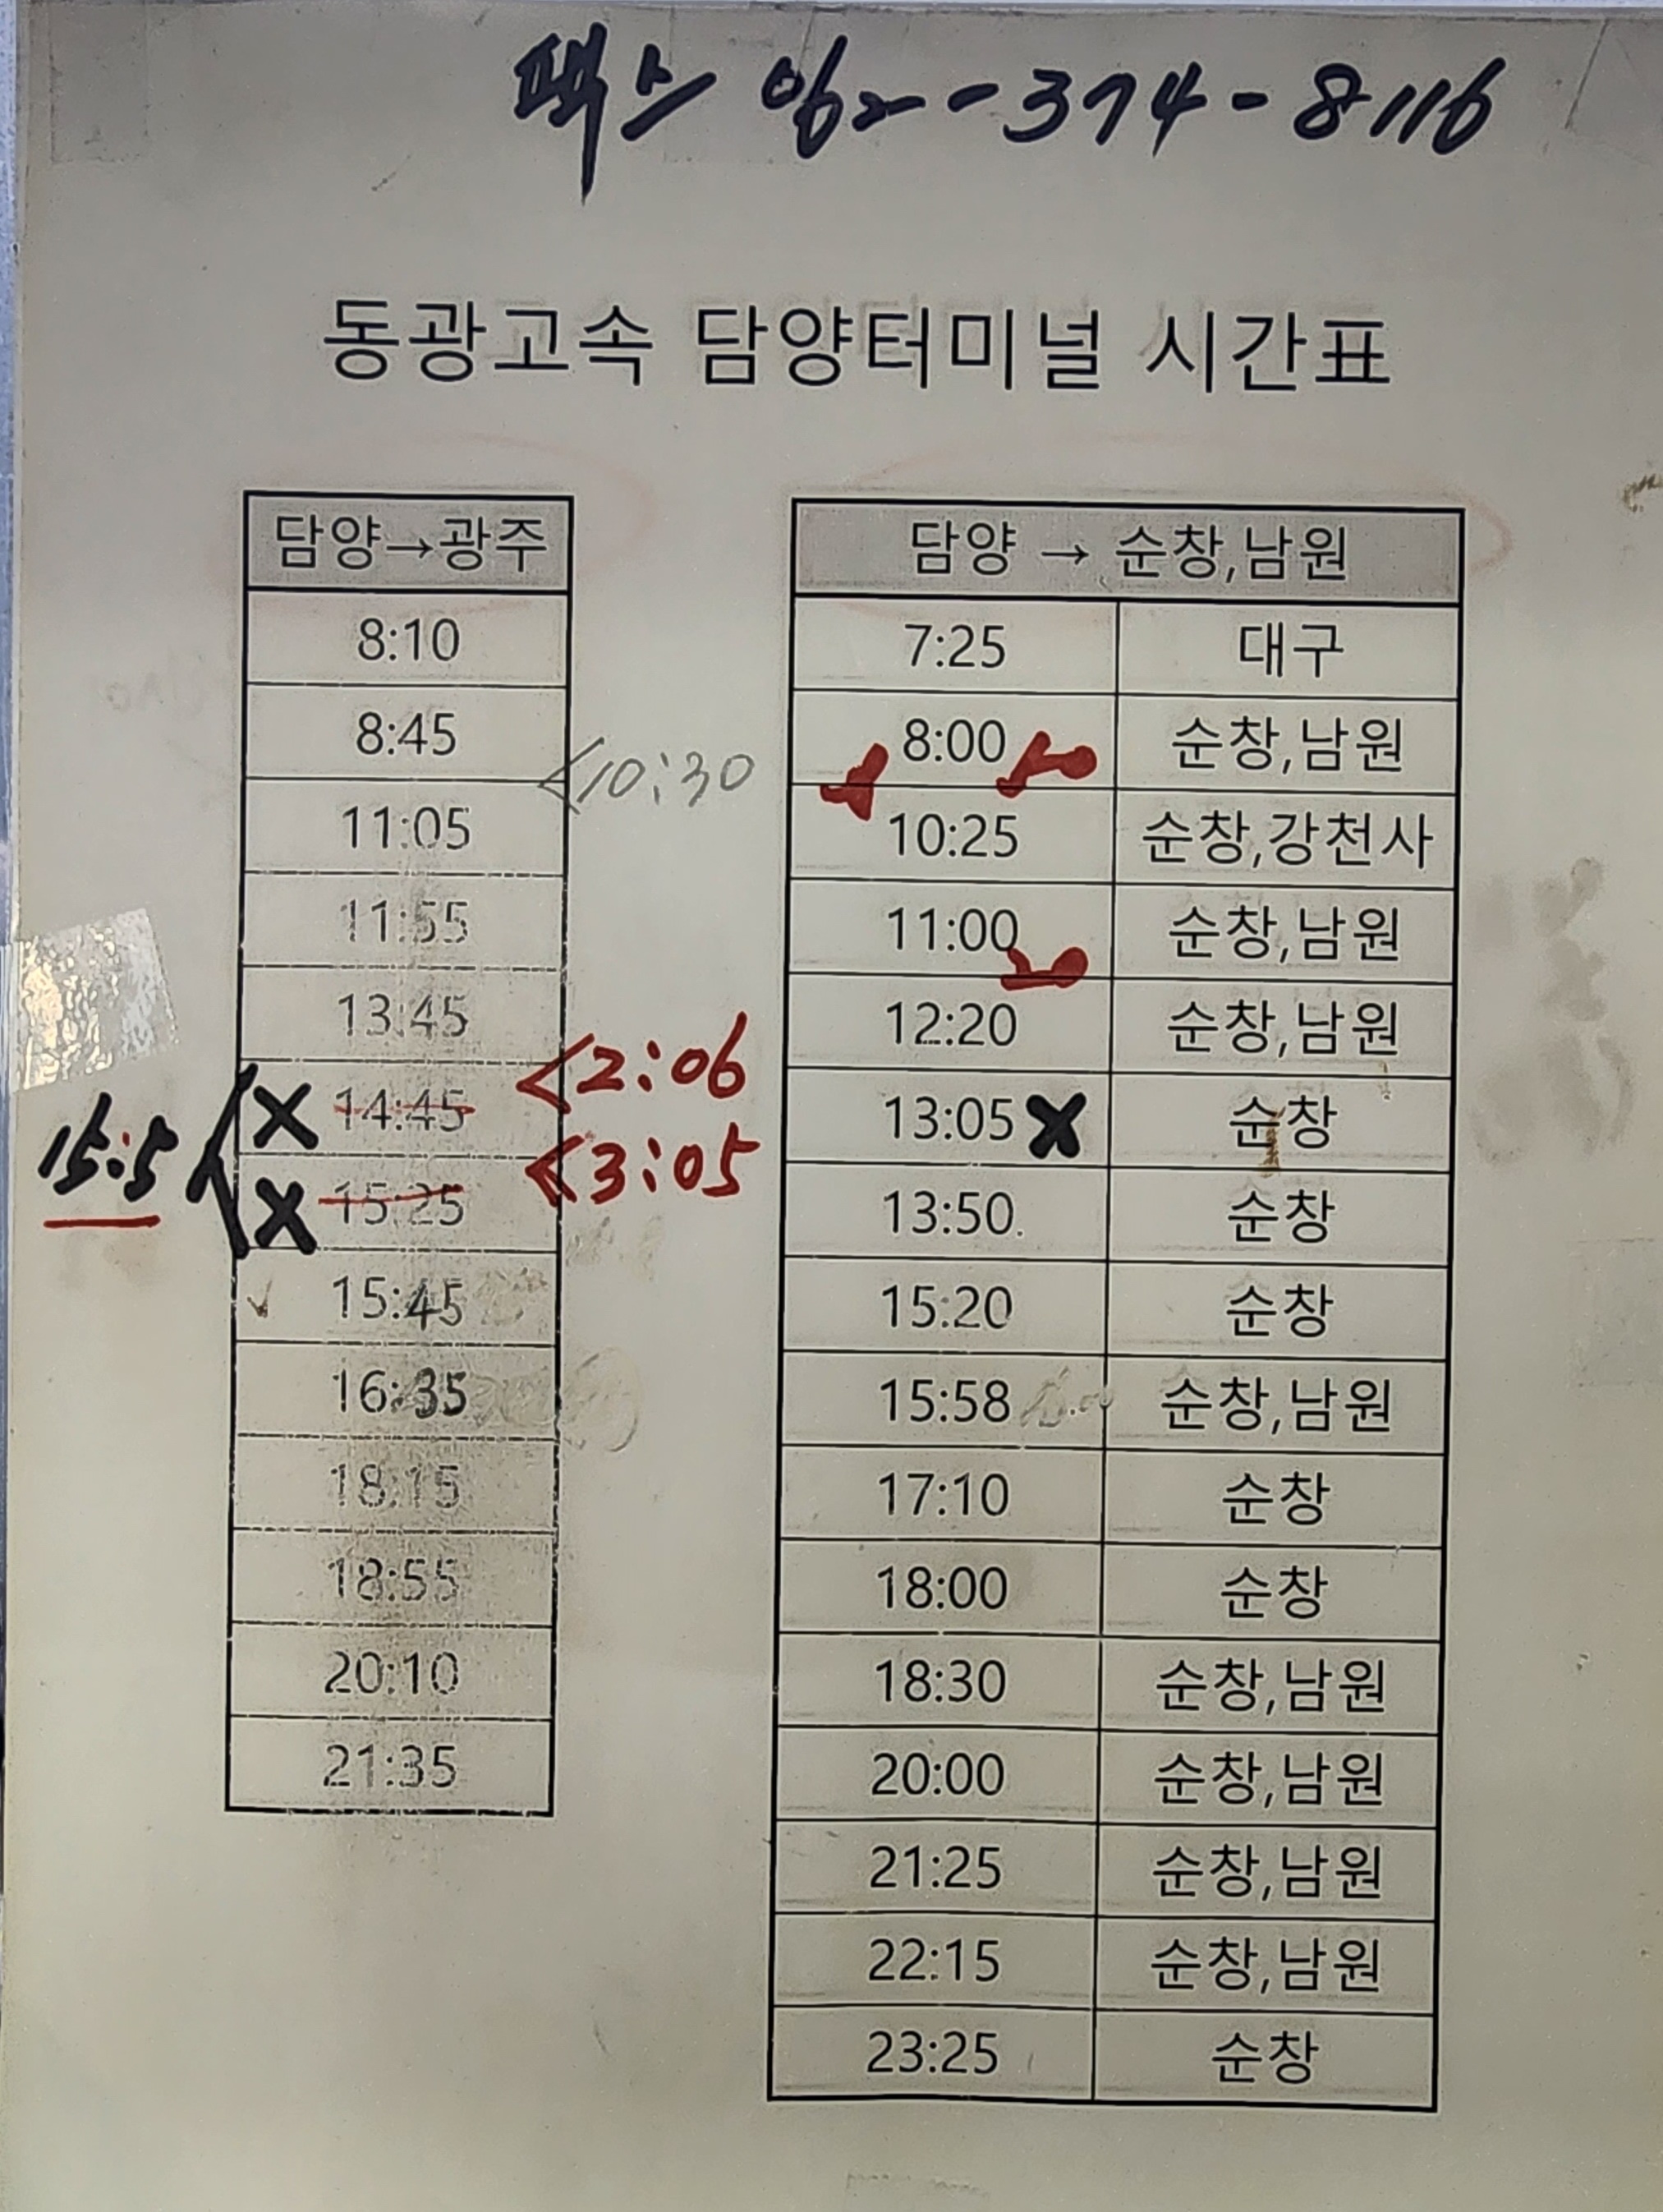 팩스 062-374-8116
동광고속 담양터미널 시간표
담양→광주
8:10
8:45
<10:30
11:05
11:55
13:45
<2:06
X 14:45
15:5
<3:05
X 15:25
15:45
16:35
18:15
18:55
20:10
21:35
담양 → 순창,남원
7:25 대구
8:00 순창,남원
10:25 순창,강천사
11:00 순창,남원
12:20 순창,남원
13:05 X 순창
13:50. 순창
15:20 순창
15:58 순창,남원
17:10 순창
18:00 순창
18:30 순창,남원
20:00 순창,남원
21:25 순창,남원
22:15 순창,남원
23:25 순창